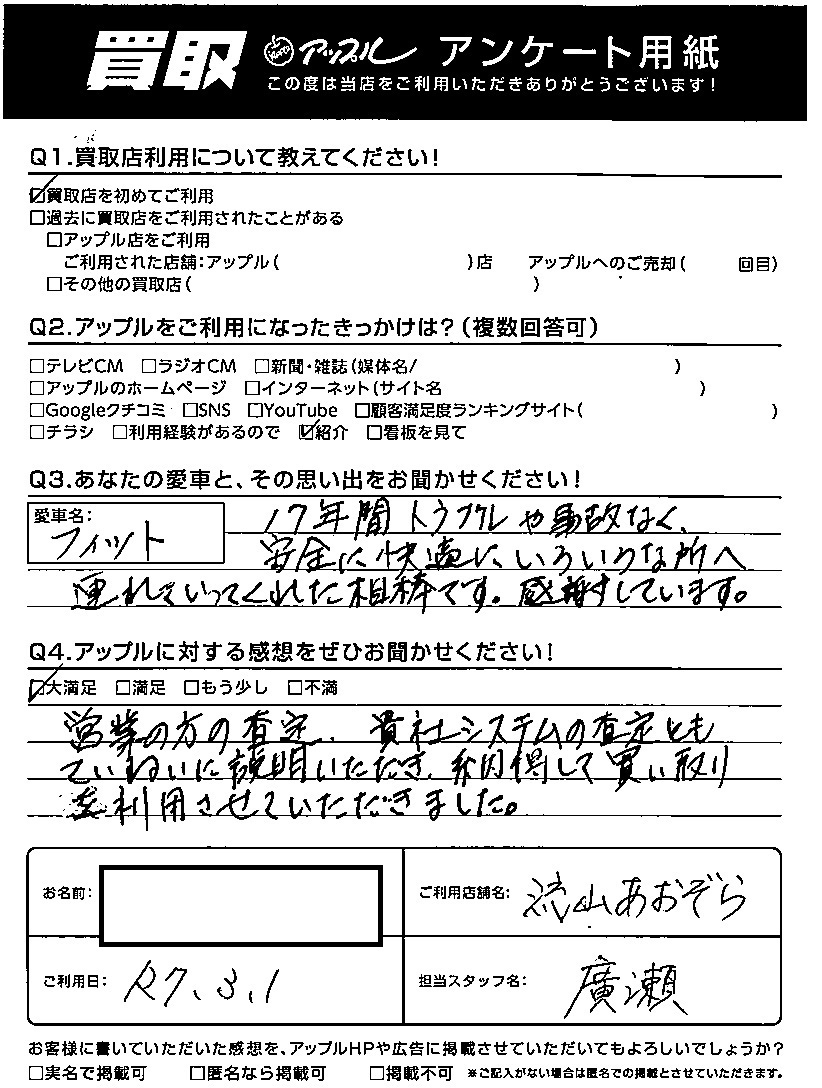 買取 アップル アンケート用紙
この度は当店をご利用いただきありがとうございます!
Q1.買取店利用について教えてください!
☑買取店を初めてご利用
□過去に買取店をご利用されたことがある
□アップル店をご利用
ご利用された店舗:アップル( )店 アップルへのご売却( 回目)
□その他の買取店( )
Q2.アップルをご利用になったきっかけは?(複数回答可)
□テレビCM □ラジオCM □新聞・雑誌(媒体名/ )
□アップルのホームページ □インターネット(サイト名 )
□Googleクチコミ □SNS □YouTube □顧客満足度ランキングサイト( )
□チラシ □利用経験があるので ☑紹介 □看板を見て
Q3.あなたの愛車と、その思い出をお聞かせください!
愛車名:
フィット
17年間トラブルや事故なく、
安全に快適に、いろいろな所へ
連れていってくれた相棒です。感謝しています。
Q4.アップルに対する感想をぜひお聞かせください!
☑大満足 □満足 □もう少し □不満
営業の方の査定、貴社システムの査定とも
ていねいに説明いただき、納得して買い取り
を利用させていただきました。
お名前:
ご利用店舗名: 流山あおぞら
ご利用日: R7.3.1
担当スタッフ名: 廣瀬
お客様に書いていただいた感想を、アップルHPや広告に掲載させていただいてもよろしいでしょうか?
□実名で掲載可 □匿名なら掲載可 □掲載不可 ※ご記入がない場合は匿名での掲載とさせていただきます。